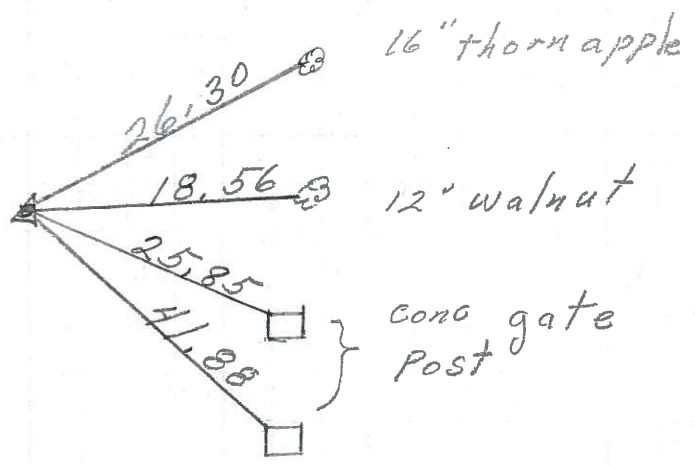 26,30
16" thorn apple
18,56
12" walnut
25,85
41,88
conc gate
Post